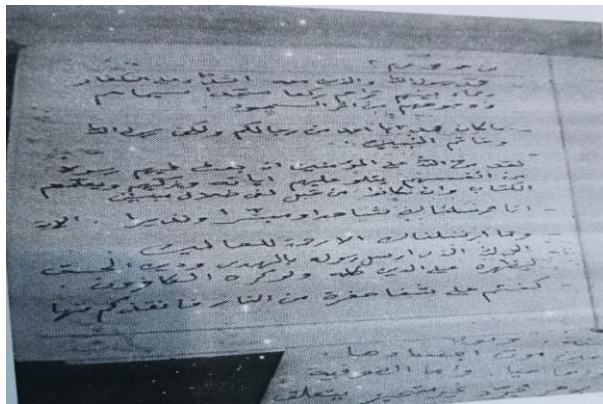 محمد رسول الله والذين معه اشداء على الكفار
رحماء بينهم تراهم ركعا سجدا سيماهم
في وجوههم من اثر السجود .
- ما كان محمد ابا احد من رجالكم ولكن رسول الله
وخاتم النبيين .
- لقد من الله على المؤمنين اذ بعث فيهم رسولا
من انفسهم يتلو عليهم اياته ويزكيهم ويعلمهم
الكتاب وان كانوا من قبل لفي ضلال مبين
- انا ارسلناك شاهدا ومبشرا ونذيرا . الاية
- وما ارسلناك الا رحمة للعالمين
- الذي ارسل رسوله بالهدى ودين الحق
ليظهره على الدين كله ولو كره الكافرون .
- كنتم على شفا حفرة من النار فانقذكم منها
موت
واما الصوفية :
يتعلق